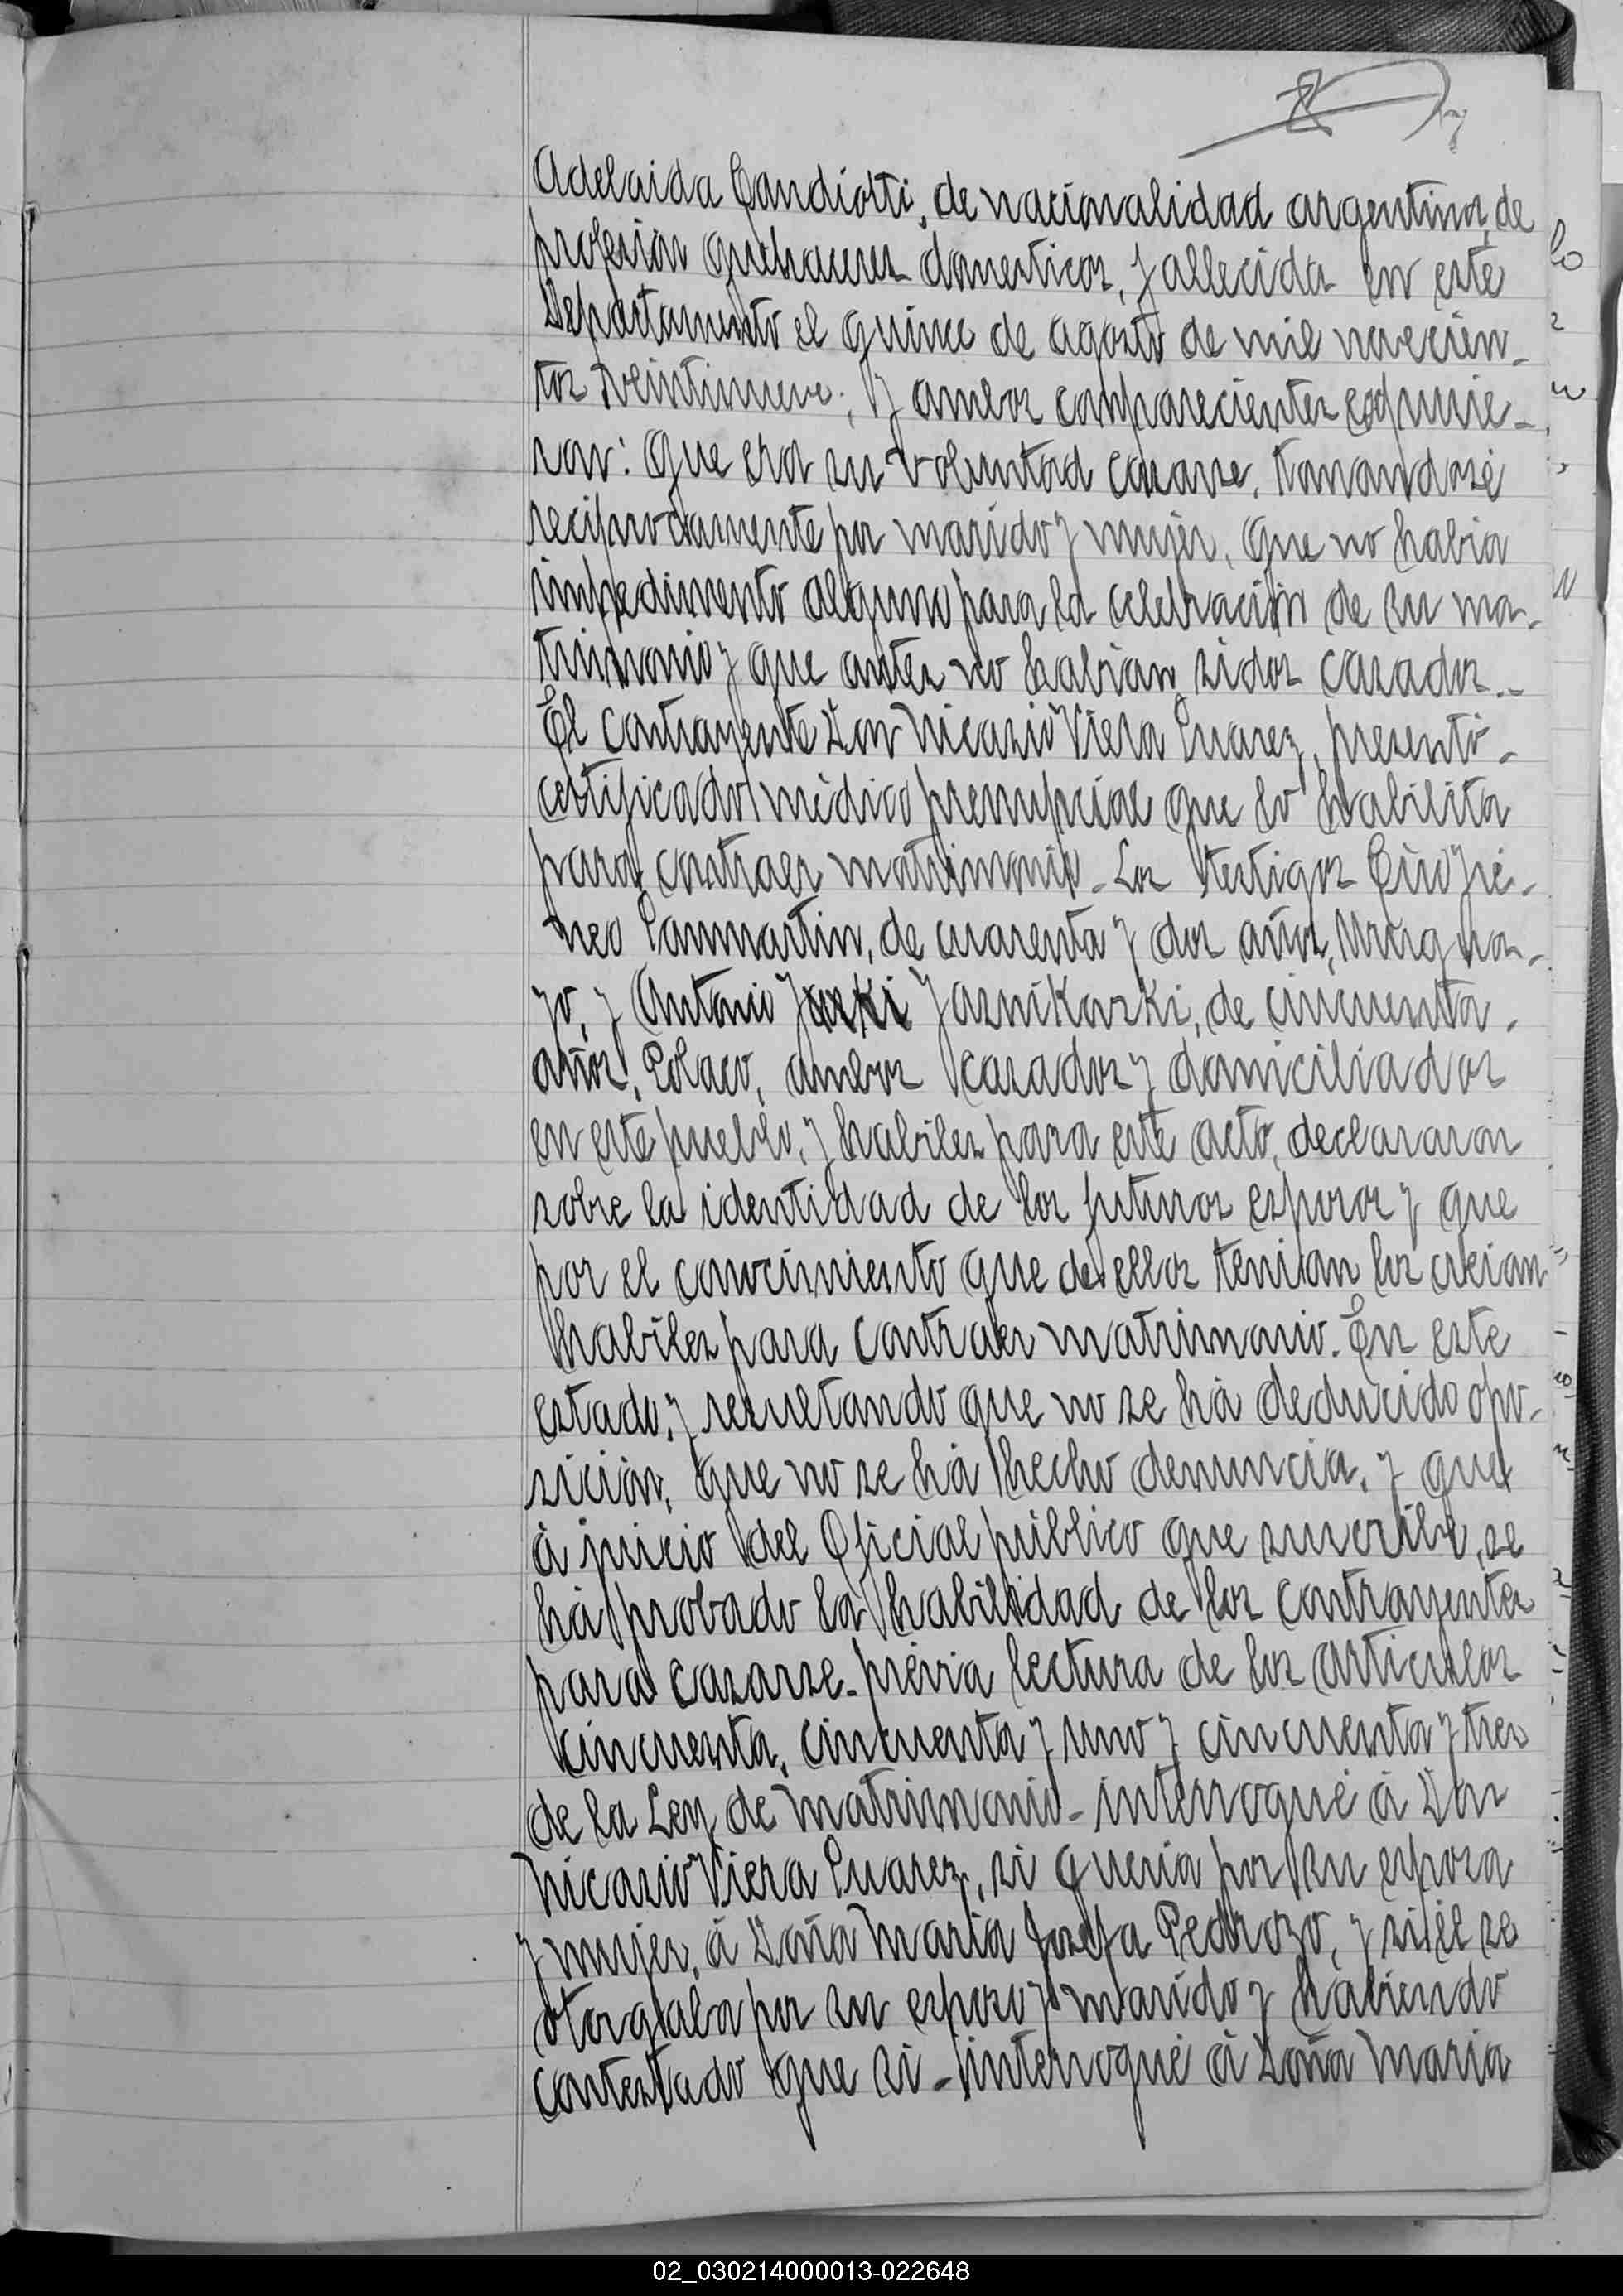 Adelaida Candiotti, de nacionalidad argentina, de
profesión quehaceres domesticos, fallecida en este
Departamento el quince de agosto de mil novecien-
tos veintinueve; y ambos comparecientes expusie-
ron: que era su voluntad casarse, tomandosé
reciprocamente por marido y mujer, que no habia
impedimento alguno para la celebración de su ma-
trimonio y que antes no habian sidos casados.-
El contrayente Don Nicasio Viera Suarez, presentó-
certificado médico prenupcial que lo habilita
para contraer matrimonio- Los testigos
Sanmartin, de cuarenta y dos años, Urugua-
yo, y Antonio Jasnikoski, de cincuenta.
años, Polaco, ambos casados y domiciliados
en este pueblo, y habiles para este acto, declararon
sobre la identidad de los futuros esposos y que
por el conocimiento que de ellos tenian los creian
habiles para contraer matrimonio. En este
estado, y resultando que no se há deducido opo-
sición, que no se há hecho denuncia, y que
á juicio del Oficial público que suscribe, se
há probado la habilidad de los contrayentes
para casarse- prévia lectura de los articulos
cincuenta, cincuenta y uno y cincuenta y tres
de la Ley de Matrimonio- interrogué á Don
Nicasio Viera Suarez, si queria por su esposa
y mujer, á Doña Maria Josefa Pedrozo, y si él se
otorgaba por su esposo y marido y habiendo
contestado que si- interrogué á Doña Maria
02_030214000013-022648